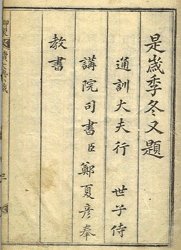 是歲季冬又題
通訓大夫行 世子侍
講院司書臣鄭夏彦奉
教書